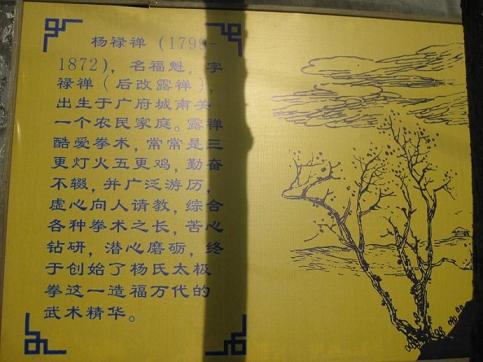 杨禄禅(1799-
1872),名福魁,字
禄禅(后改露禅),
出生于广府城南关
一个农民家庭。露禅
酷爱拳术,常常是三
更灯火五更鸡,勤奋
不辍,并广泛游历,
虚心向人请教,综合
各种拳术之长,苦心
钻研,潜心磨砺,终
于创始了杨氏太极
拳这一造福万代的
武术精华。